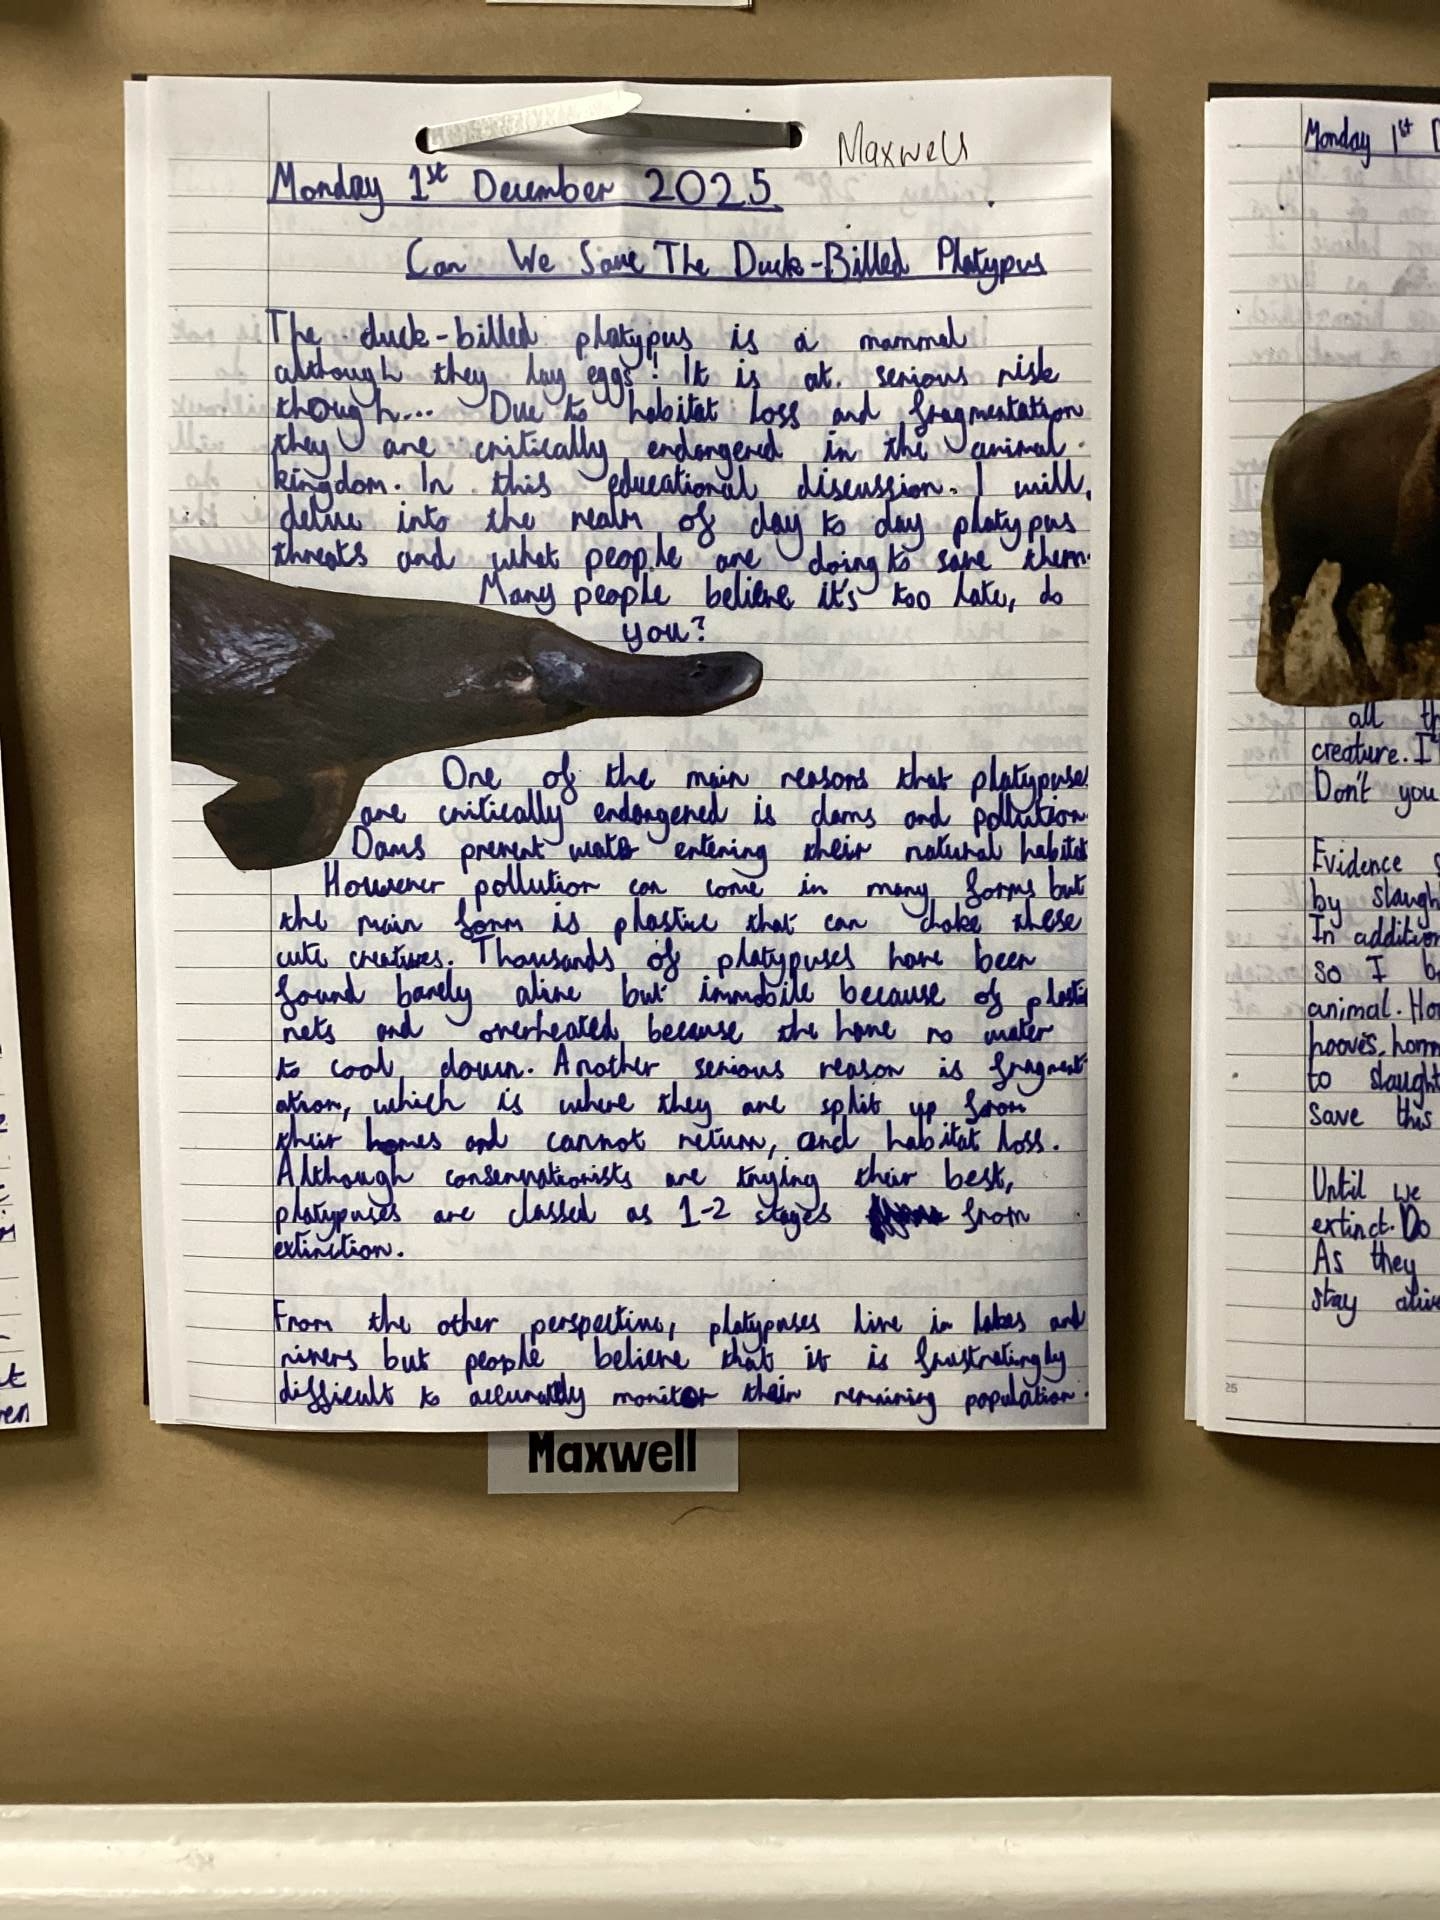 Maxwell
Monday 1st December 2025
Can We Save The Duck-Billed Platypus
The duck-billed platypus is a mammal
although they lay eggs! It is at serious risk
though... Due to habitat loss and fragmentation
they are critically endangered in the animal
kingdom. In this educational discussion. I will
delve into the realm of day to day platypus
threats and what people are doing to save them.
Many people believe it's too late, do
you?
One of the main reasons that platypuses
are critically endangered is dams and pollution
Dams prevent water entering their natural habitat
However pollution can come in many forms but
the main form is plastic that can choke these
cute creatures. Thousands of platypuses have been
found barely alive but immobile because of plastic
nets and overheated because the have no water
to cool down. Another serious reason is fragment-
ation, which is where they are split up from
their homes and cannot return, and habitat loss.
Although conservationists are trying their best,
platypuses are classed as 1-2 stages from
extinction.
From the other perspective, platypuses live in lakes and
rivers but people believe that it is frustratingly
difficult to accurately monitor their remaining population.
Maxwell
Monday 1st D
all th
creature. I
Don't you
Evidence s
by slaugh
In addition
so I b
animal. Ho
hooves, horn
to slaught
save this
Until we
extinct. Do
As they
stay alive
25